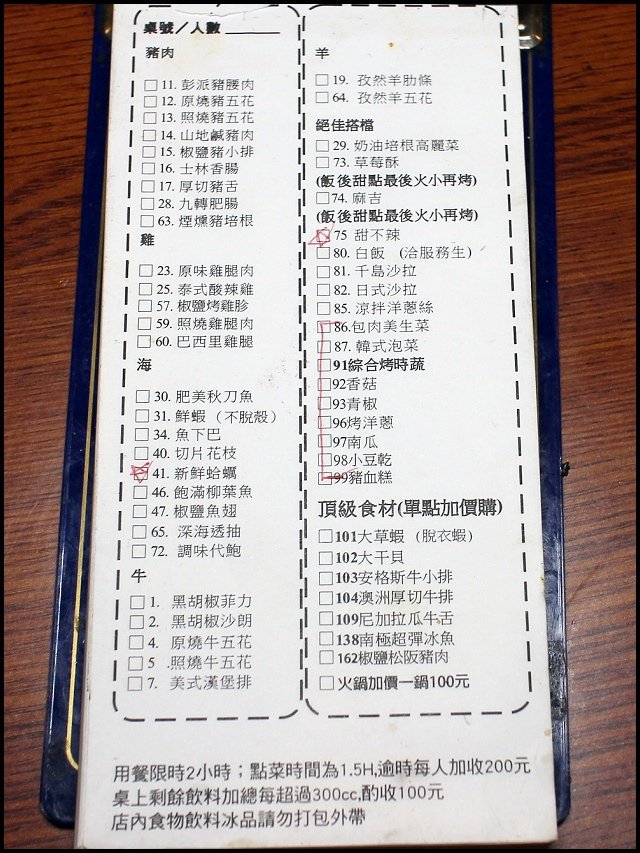 桌號／人數
豬肉
□11. 彭派豬腰肉
□12. 原燒豬五花
□13. 照燒豬五花
□14. 山地鹹豬肉
□15. 椒鹽豬小排
□16. 士林香腸
□17. 厚切豬舌
□28. 九轉肥腸
□63. 煙燻豬培根
雞
□23. 原味雞腿肉
□25. 泰式酸辣雞
□57. 椒鹽烤雞胗
□59. 照燒雞腿肉
□60. 巴西里雞腿
海
□30. 肥美秋刀魚
□31. 鮮蝦 (不脫殼)
□34. 魚下巴
□40. 切片花枝
□41. 新鮮蛤蠣
□46. 飽滿柳葉魚
□47. 椒鹽魚翅
□65. 深海透抽
□72. 調味代鮑
牛
□1. 黑胡椒菲力
□2. 黑胡椒沙朗
□4. 原燒牛五花
□5 .照燒牛五花
□7. 美式漢堡排
羊
□19. 孜然羊肋條
□64. 孜然羊五花
絕佳搭檔
□29. 奶油培根高麗菜
□73. 草莓酥
(飯後甜點最後火小再烤)
□74. 麻吉
(飯後甜點最後火小再烤)
□75 甜不辣
□80. 白飯 (洽服務生)
□81. 千島沙拉
□82. 日式沙拉
□85. 涼拌洋蔥絲
□86.包肉美生菜
□87. 韓式泡菜
□91綜合烤時蔬
□92香菇
□93青椒
□96烤洋蔥
□97南瓜
□98小豆乾
□99豬血糕
頂級食材(單點加價購)
□101大草蝦 (脫衣蝦)
□102大干貝
□103安格斯牛小排
□104澳洲厚切牛排
□109尼加拉瓜牛舌
□138南極超彈冰魚
□162椒鹽松阪豬肉
□火鍋加價一鍋100元
用餐限時2小時；點菜時間為1.5H,逾時每人加收200元
桌上剩餘飲料加總每超過300cc,酌收100元
店內食物飲料冰品請勿打包外帶